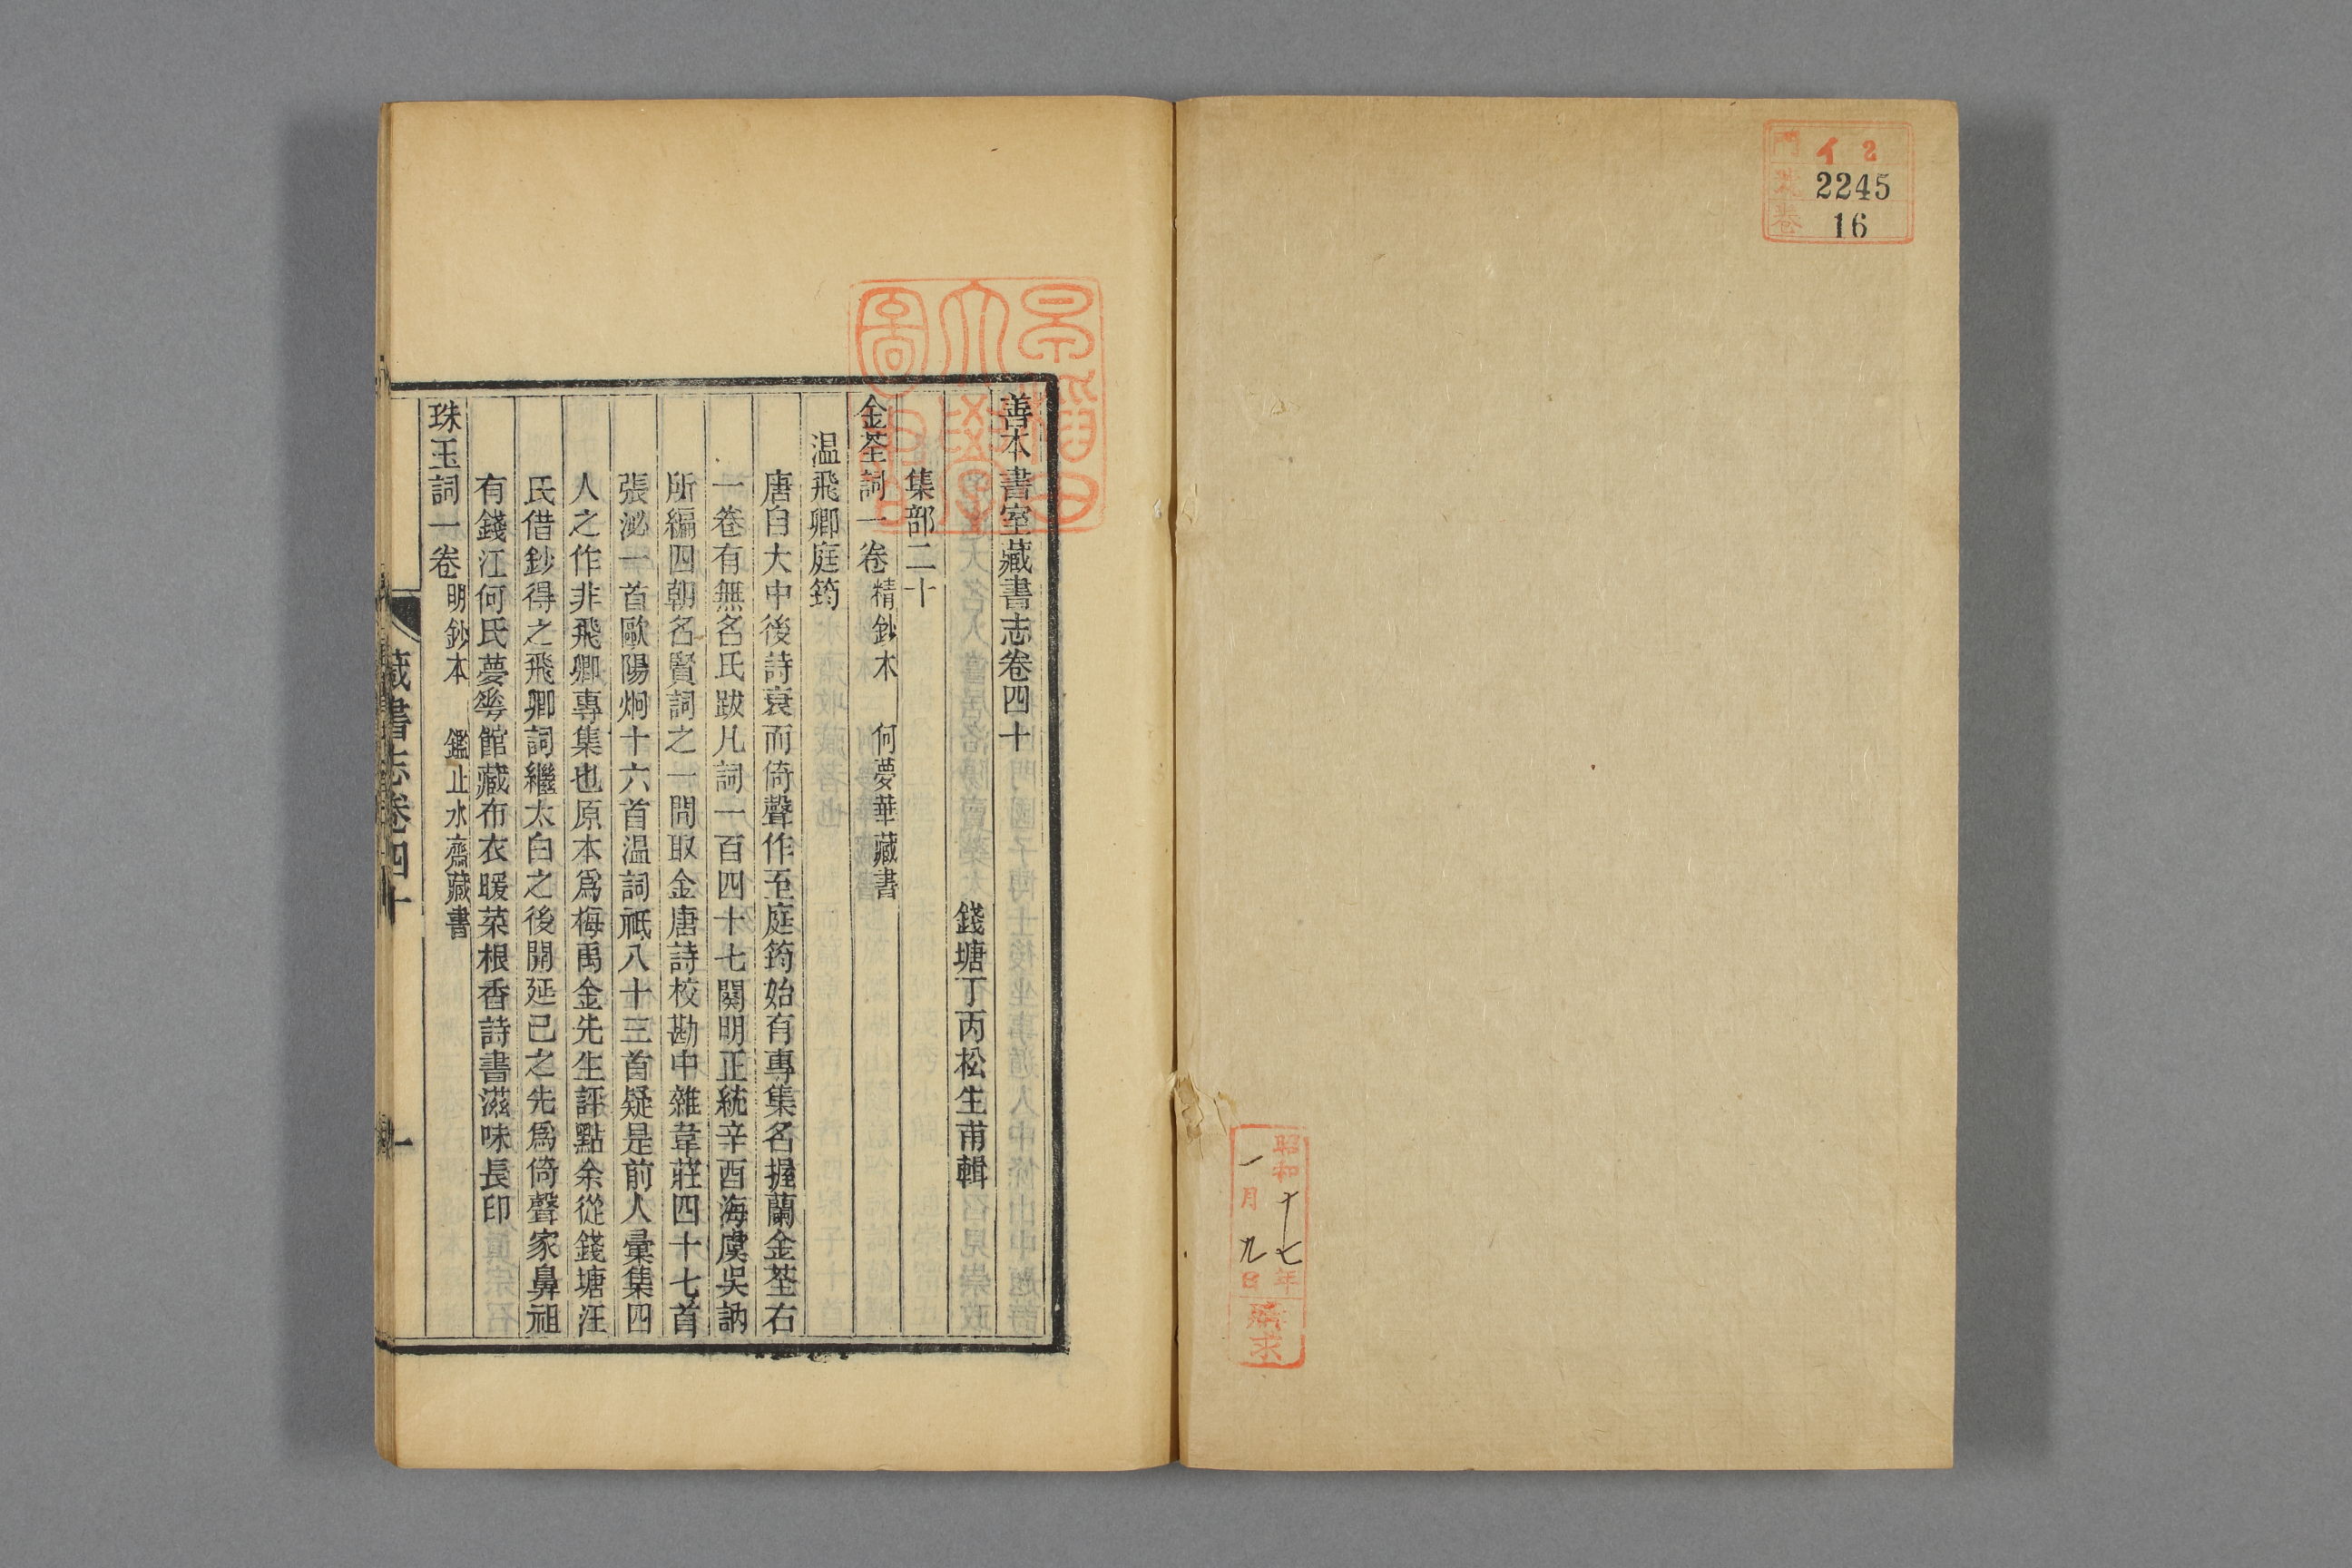 門 イ 2
號 2245
卷 16
昭和十七年
一月九日
購求
早稻田大學圖書
善本書室藏書志卷四十
錢塘丁丙松生甫輯
集部二十
金荃詞一卷 精鈔本 何夢華藏書
温飛卿庭筠
唐自大中後詩衰而倚聲作至庭筠始有專集名握蘭金荃右
一卷有無名氏跋凡詞一百四十七闋明正統辛酉海虞吳訥
所編四朝名賢詞之一間取金唐詩校勘中雜韋莊四十七首
張泌一首歐陽炯十六首温詞祇八十三首疑是前人彙集四
人之作非飛卿專集也原本爲梅禹金先生評點余從錢塘汪
氏借鈔得之飛卿詞繼太白之後開延已之先爲倚聲家鼻祖
有錢江何氏夢華館藏布衣暖菜根香詩書滋味長印
珠玉詞一卷 明鈔本 鑑止水齋藏書
藏書志卷四十
一